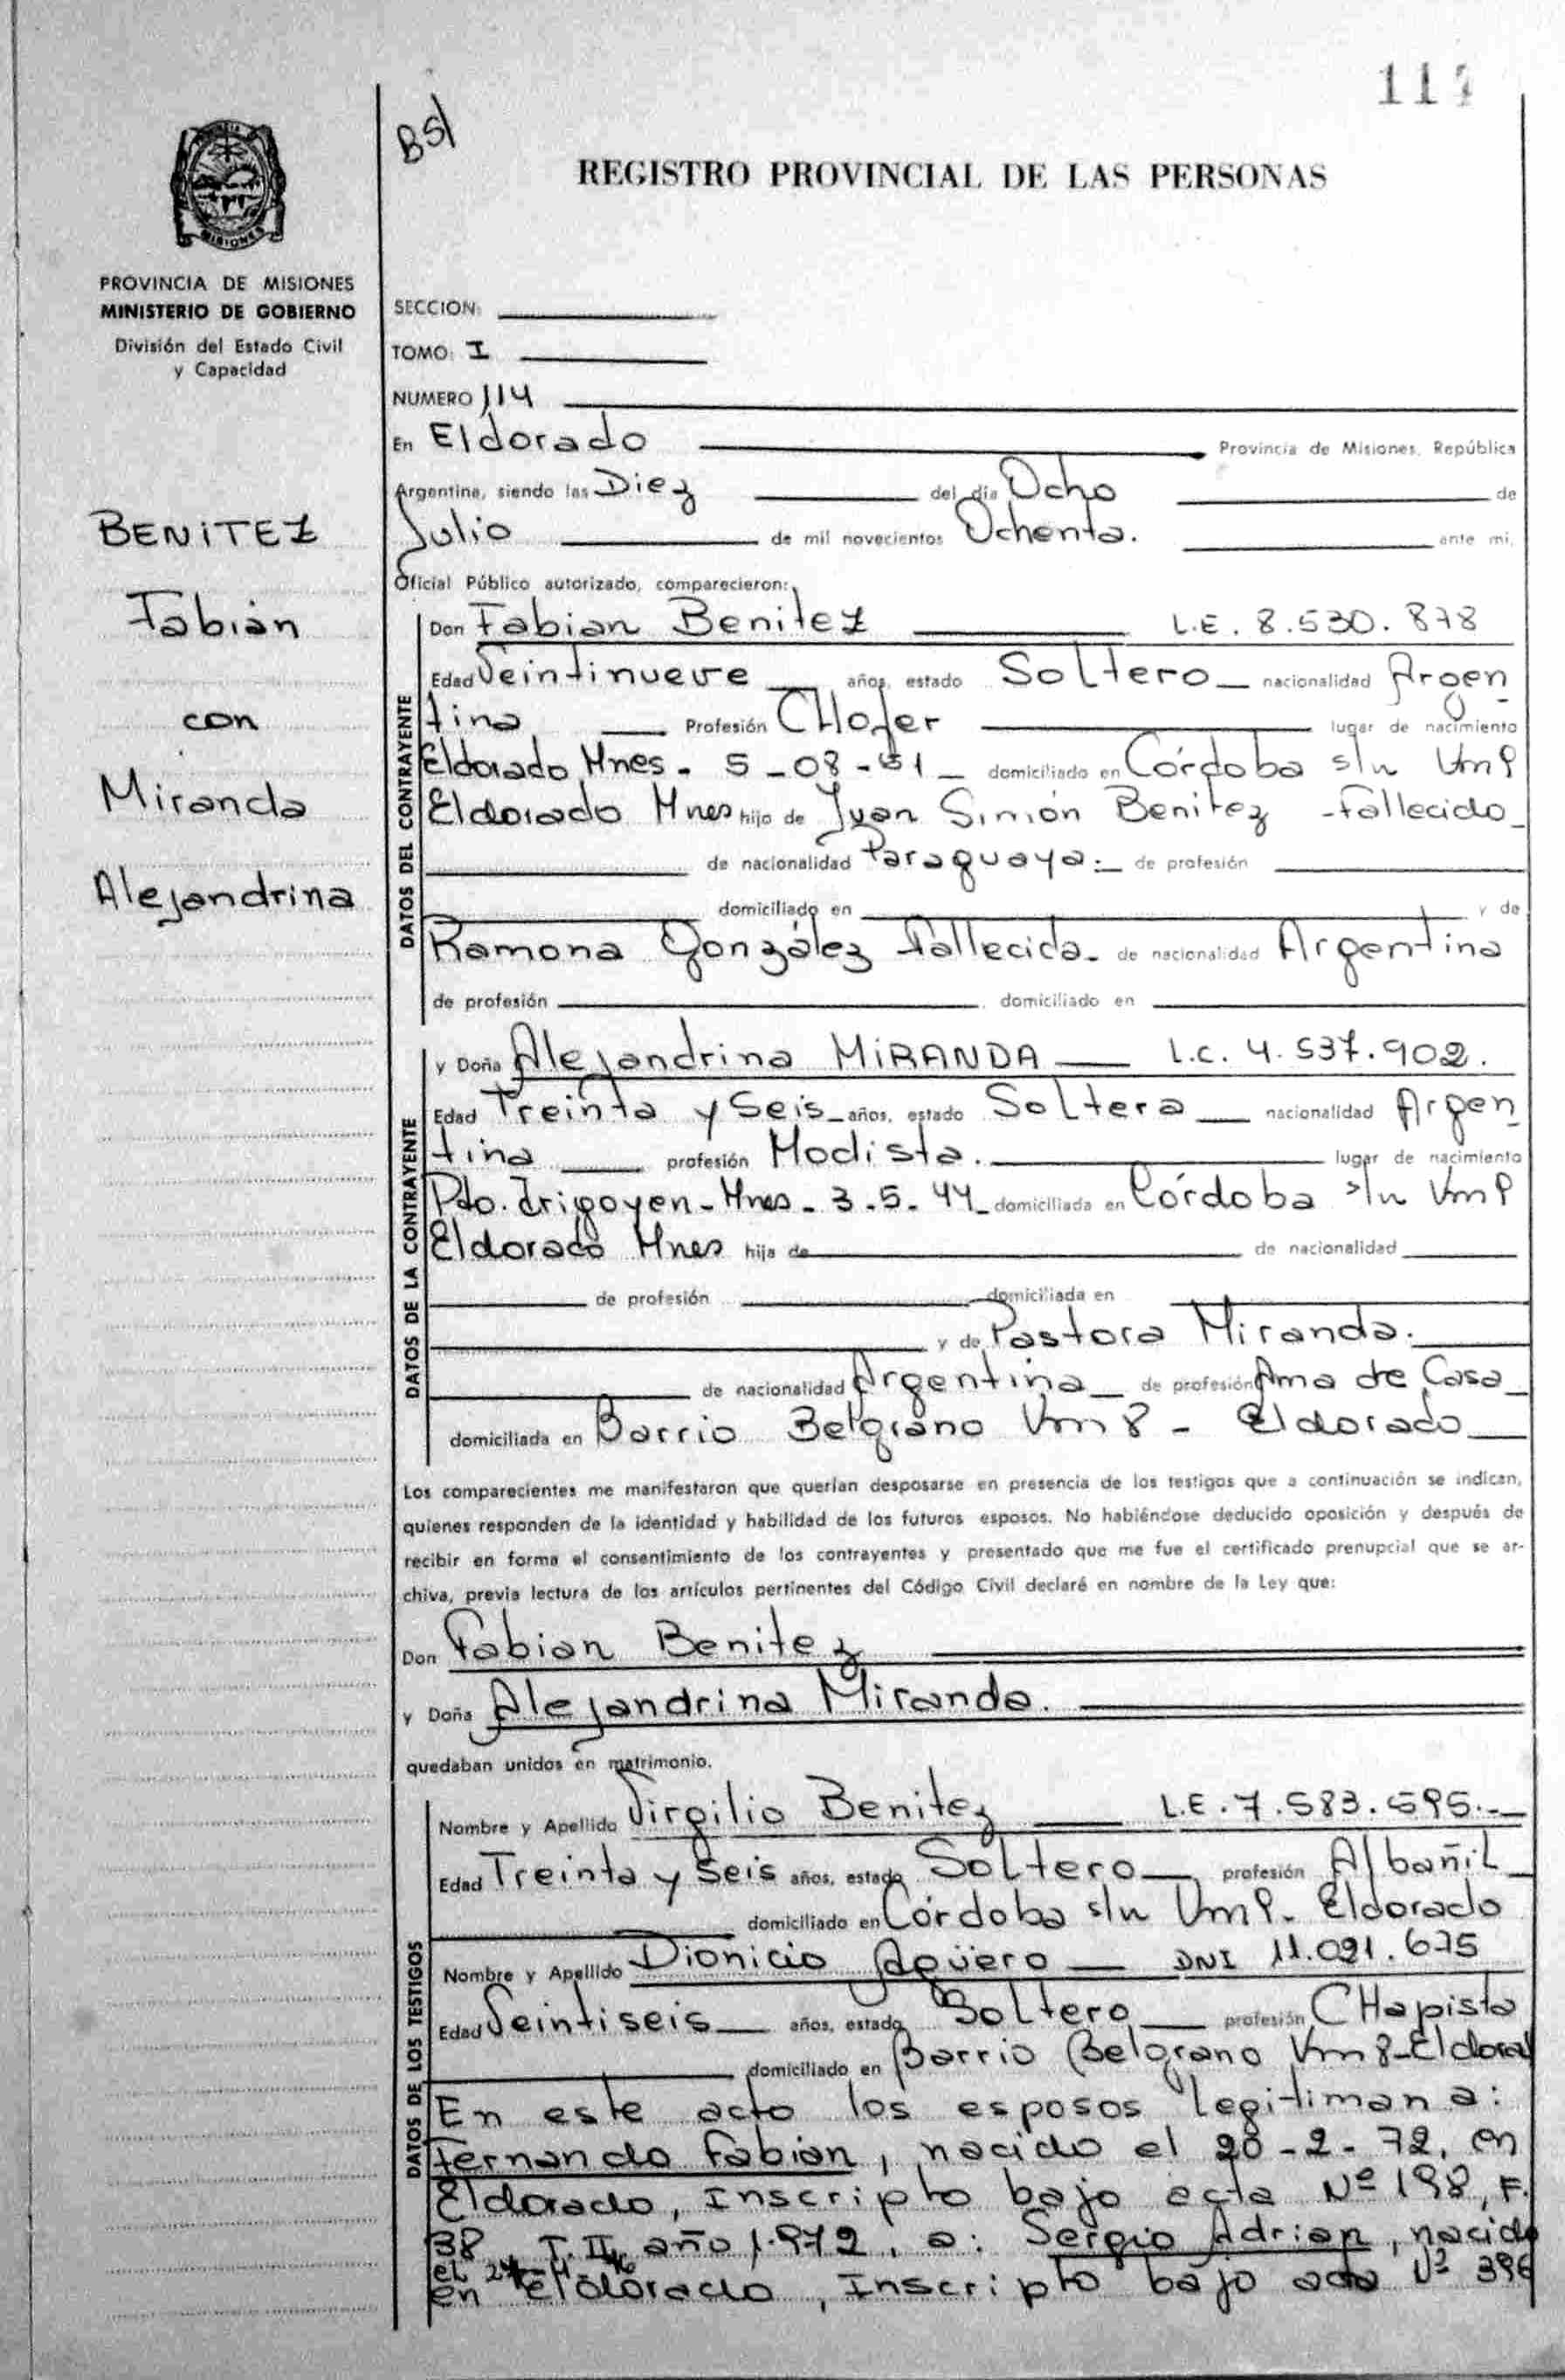 114
BS/
REGISTRO PROVINCIAL DE LAS PERSONAS
MISIONES
PROVINCIA DE MISIONES
MINISTERIO DE GOBIERNO
División del Estado Civil
y Capacidad
BENITEZ
Fabián
con
Miranda
Alejandrina
SECCION:
TOMO: I
NUMERO 114
En Eldorado Provincia de Misiones, República
Argentina, siendo las Diez del día Ocho de
Julio de mil novecientos Ochenta. ante mi,
Oficial Público autorizado, comparecieron:
DATOS DEL CONTRAYENTE
Don Fabian Benitez L.E. 8.530.878
Edad Veintinueve años, estado Soltero nacionalidad Argen
tina Profesión CHofer lugar de nacimiento
Eldorado Mnes. 5-08-51 domiciliado en Córdoba s/n Km 9
Eldorado Mnes hijo de Juan Simón Benitez - Fallecido
de nacionalidad Paraguaya. de profesión
domiciliado en y de
Ramona González Fallecida. de nacionalidad Argentina
de profesión domiciliado en
DATOS DE LA CONTRAYENTE
y Doña Alejandrina MIRANDA L.C. 4.537.902.
Edad Treinta y Seis años, estado Soltera nacionalidad Argen
tina profesión Modista. lugar de nacimiento
Pto. Irigoyen - Mnes. 3.5.44 domiciliada en Córdoba s/n Km 9
Eldorado Mnes hija de de nacionalidad
de profesión domiciliada en
y de Pastora Miranda.
de nacionalidad Argentina de profesión Ama de Casa
domiciliada en Barrio Belgrano Km 8 - Eldorado
Los comparecientes me manifestaron que querían desposarse en presencia de los testigos que a continuación se indican,
quienes responden de la identidad y habilidad de los futuros esposos. No habiéndose deducido oposición y después de
recibir en forma el consentimiento de los contrayentes y presentado que me fue el certificado prenupcial que se ar-
chiva, previa lectura de los artículos pertinentes del Código Civil declaré en nombre de la Ley que:
Don Fabian Benitez
y Doña Alejandrina Miranda.
quedaban unidos en matrimonio.
DATOS DE LOS TESTIGOS
Nombre y Apellido Virgilio Benitez L.E. 7.583.595.
Edad Treinta y Seis años, estado Soltero profesión Albañil
domiciliado en Córdoba s/n Km 9. Eldorado
Nombre y Apellido Dionicio Agüero DNI 11.021.675
Edad Veintiseis años, estado Soltero profesión CHapista
domiciliado en Barrio Belgrano Km 8 - Eldorad
En este acto los esposos legitiman a:
Fernando Fabián, nacido el 20-2-72, en
Eldorado, Inscripto bajo acta Nº 198, F.
38 T. II, año 1.972, a: Sergio Adrian, nacido
el
en Eldorado, Inscripto bajo acta Nº 396